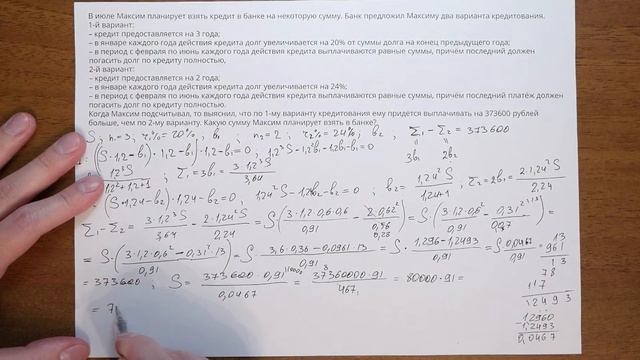 В июле Максим планирует взять кредит в банке на некоторую сумму. Банк предложил Максиму два варианта кредитования.
1-й вариант:
– кредит предоставляется на 3 года;
– в январе каждого года действия кредита долг увеличивается на 20% от суммы долга на конец предыдущего года;
– в период с февраля по июнь каждого года действия кредита выплачиваются равные суммы, причём последний должен
погасить долг по кредиту полностью,
2-й вариант:
– кредит предоставляется на 2 года;
– в январе каждого года действия кредита долг увеличивается на 24%;
– в период с февраля по июнь каждого года действия кредита выплачиваются равные суммы, причём последний платёж должен
погасить долг по кредиту полностью.
Когда Максим подсчитывал, то выяснил, что по 1-му варианту кредитования ему придётся выплачивать на 373600 рублей
больше, чем по 2-му варианту. Какую сумму Максим планирует взять в банке?
S, n₁=3; r₁%=20%, b₁ n₂=2; r₂%=24%; b₂, Σ₁-Σ₂ = 373600
3b₁ 2b₂
(S·1,2-b₁)·1,2-b₁)·1,2-b₁=0, 1,2³S-1,2²b₁-1,2b₁-b₁=0
1,2³S / 1,2²+1,2+1; Σ₁=3b₁= 3·1,2³S / 3,64
(S·1,24-b₂)·1,24-b₂=0, 1,24²S-1,24b₂-b₂=0; b₂= 1,24²S / 1,24+1, Σ₂=2b₁= 2·1,24²S / 2,24
Σ₁-Σ₂= 3·1,2³S / 3,64 - 2·1,24²S / 2,24 = S(3·1,2·0,6·0,6 / 0,91 - 2·0,62² / 0,56 0,28) = S(3·1,2·0,6² / 0,91 - 0,31² / 0,07) =
= S·(3·1,2·0,6²-0,31²·13 / 0,91) = S· 3,6·0,36-0,0961·13 / 0,91 = S· 1,296-1,2493 / 0,91 = S· 0,0467 / 0,91 =
= 373600, S= 373600·0,91 / 0,0467 = 37360000·91 / 467 = 80000·91 =
= 7
961
13
1,2493
1,2960
-1,2493
0,0467